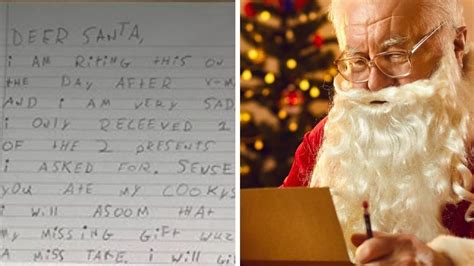 DEER SANTA,
i AM RiTiNG THiS ON
THE DAY AFTER X-M
AND i AM VERY SAD
i ONLY RECEEVED 1
OF THE 2 PRESENTS
i ASKED FOR. SENSE
YOU ATE MY COOKYS
i WiLL ASOOM THAT
MY MiSSiNG GiFT WUZ
A MISS TAKE. i WiLL Gi